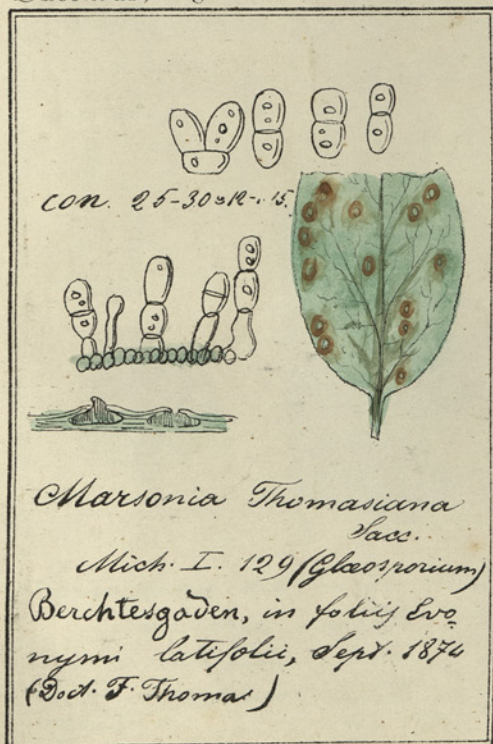 con. 25-30 = 12-15.
Marsonia Thomasiana
Sacc.
Mich. I. 129 (Glœosporium)
Berchtesgaden, in foliis Evo-
nymi latifolii, Sept. 1874
(Doct. F. Thomas)